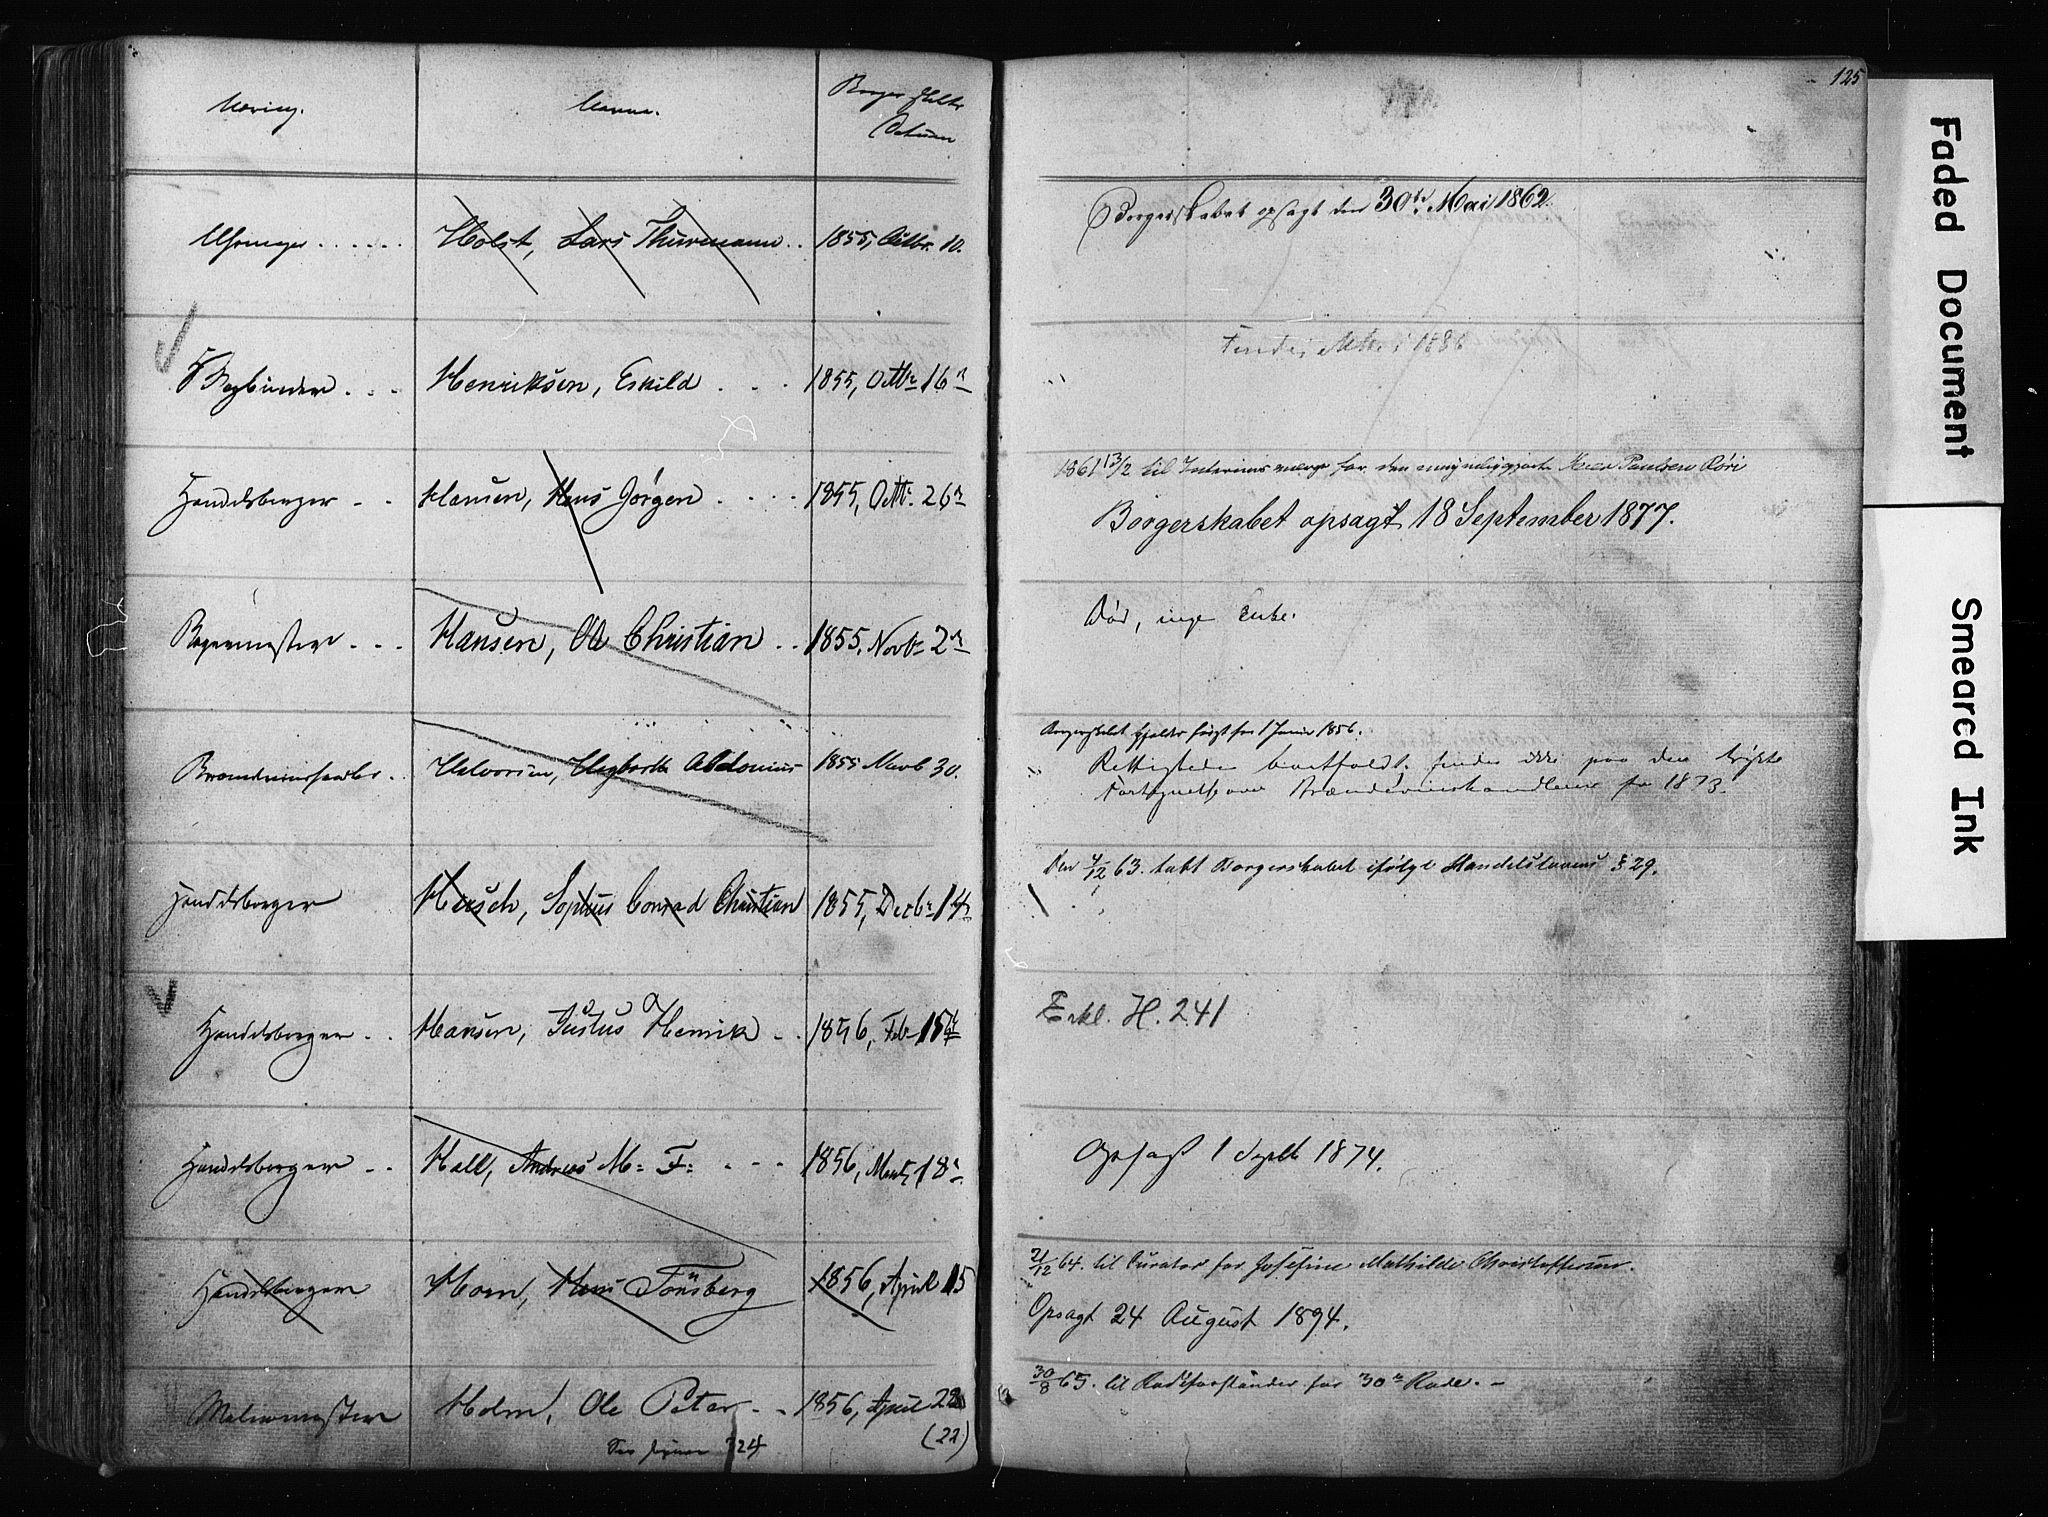 125
Næring.
Navne.
Borgerskabets
Datum
Holst, Lars Thurmann . .
1855, Octbr. 10.
Borgerskabet opsagt den 30te Mai 1862.
Bogbinder . . .
Henriksen, Eskild . . .
1855, Octbr 16
1886
Handelsborger . .
Hansen, Hans Jørgen . . . .
1855, Octbr 26
1861 13/2 til for den
Borgerskabet opsagt 18 September 1877.
Bagermester . . .
Hansen, Ole Christian . .
1855, Novbr 2
Død, ingen Enke.
Halvorsen,
1855 Novb 30.
Borgerskabet gjelder først fra 1 Januar 1856.
Rettigheden bortfaldt, findes ikke paa den trykte
Fortegnelse over Brændevinshandlere for 1873.
Handelsborger
Hersch, Sophus Conrad Christian
1855, Decbr 14
Den 7/12 63. tabt Borgerskabet ifølge Handelslovens § 29.
Handelsborger . .
Hansen, Justus Henrik . .
1856, Feb 15
Erkl. H. 241
Handelsborger . .
Hall, Andreas M: F: . . .
1856, Marts 18
Opsagt 1 Septb 1874.
Handelsborger
Horn, Hans Tönsberg
1856, April 15
21/12 64. til Curator for Josefine Mathilde Christoffersen.
Opsagt 24 August 1894.
Malermester
Holm, Ole Peter . .
1856, April 22
(22)
324
30/8 65. til Rodeforstander for 30te Rode. –
Faded Document
Smeared Ink